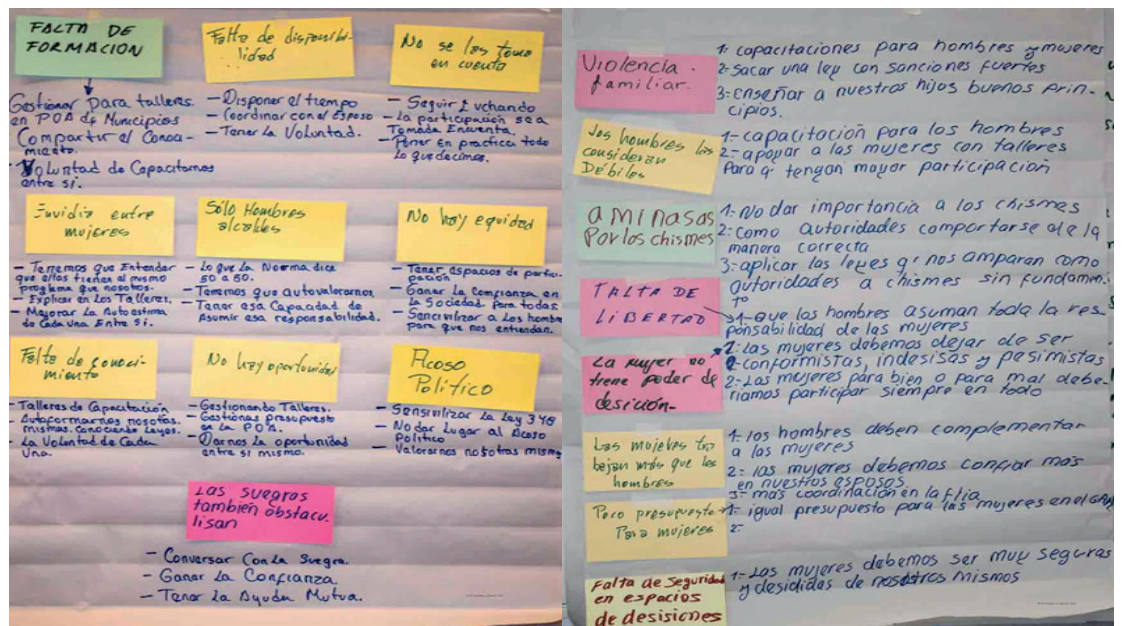 FALTA DE
FORMACION
Gestionar para talleres.
en POA de Municipios
Compartir el Conoci-
miento.
Voluntad de Capacitarnos
entre si.
Falta de disponibi-
lidad
- Disponer el tiempo
- Coordinar con el Esposo
- Tener La Voluntad.
No se les toma
en cuenta
- Seguir Luchando
- La participación sea
Tomada Encuenta.
- Poner En practica todo
Lo que decimos.
Envidia entre
mujeres
- Tenemos que Entender
que ellas tienen el mismo
problema que nosotras.
- Explicar en Los Talleres.
- Mejorar La Autoestima
de Cada una Entre Si.
Sólo Hombres
alcaldes
- Lo que La Norma dice
50 a 50.
- Tenemos que autovalorarnos
- Tener esa Capacidad de
Asumir esa responsabilidad.
No hay equidad
- Tener espacios de partici-
pación
- Ganar La Confianza en
La Sociedad Para todas.
- Sencivilizar a Los hombres
para que nos entiendan.
Falta de conoci-
miento
- Talleres de Capacitación
- Autoformarnos nosotras
mistras. Conociendo Leyes.
- La Voluntad de Cada
Una.
No hay oportunidad
- Gestionando Talleres.
- Gestionar presupuesto
en La POA.
- Darnos La oportunidad
entre si mismo.
Acoso
Politico
- Sencivilizar La Ley 348
- No dar Lugar al Acoso
Politico
- Valorarnos nosotras mismas
Las suegras
también obstacu
lisan
- Conversar Con La Suegra.
- Ganar La Confianza.
- Tener La Ayuda Mutua.
Violencia
familiar.
1- capacitaciones para hombres y mujeres
2- Sacar una ley con sanciones fuertes
3- enseñar a nuestros hijos buenos prin-
cipios.
Los hombres las
consideran
Débiles
1- capacitación para los hombres
2- apoyar a las mujeres con talleres
Para q' tengan mayor participación
aminasas
Por los chismes
1- No dar importancia a los chismes
2- como autoridades comportarse de la
manera correcta
3- aplicar las leyes q' nos amparan como
autoridades a chismes sin fundamen
to
FALTA DE
LIBERTAD
1- Que los hombres asuman toda la res-
ponsabilidad de las mujeres
La mujer no
tiene poder de
desición-
1- Las mujeres debemos dejar de ser
conformistas, indesisas y pesimistas
2- Las mujeres para bien o para mal debe-
riamos participar siempre en todo
Las mujeres tra
bajan más que los
hombres
1- los hombres deben complementar
a las mujeres
2- las mujeres debemos confiar mas
en nuestros esposos
3- mas coordinación en la flia
Poco presupuesto
Para mujeres
1- igual presupuesto para las mujeres en el GAM
2-
Falta de Seguridad
en espacios
de desisiones
1- Las mujeres debemos ser muy seguras
y desididas de nosotros mismos